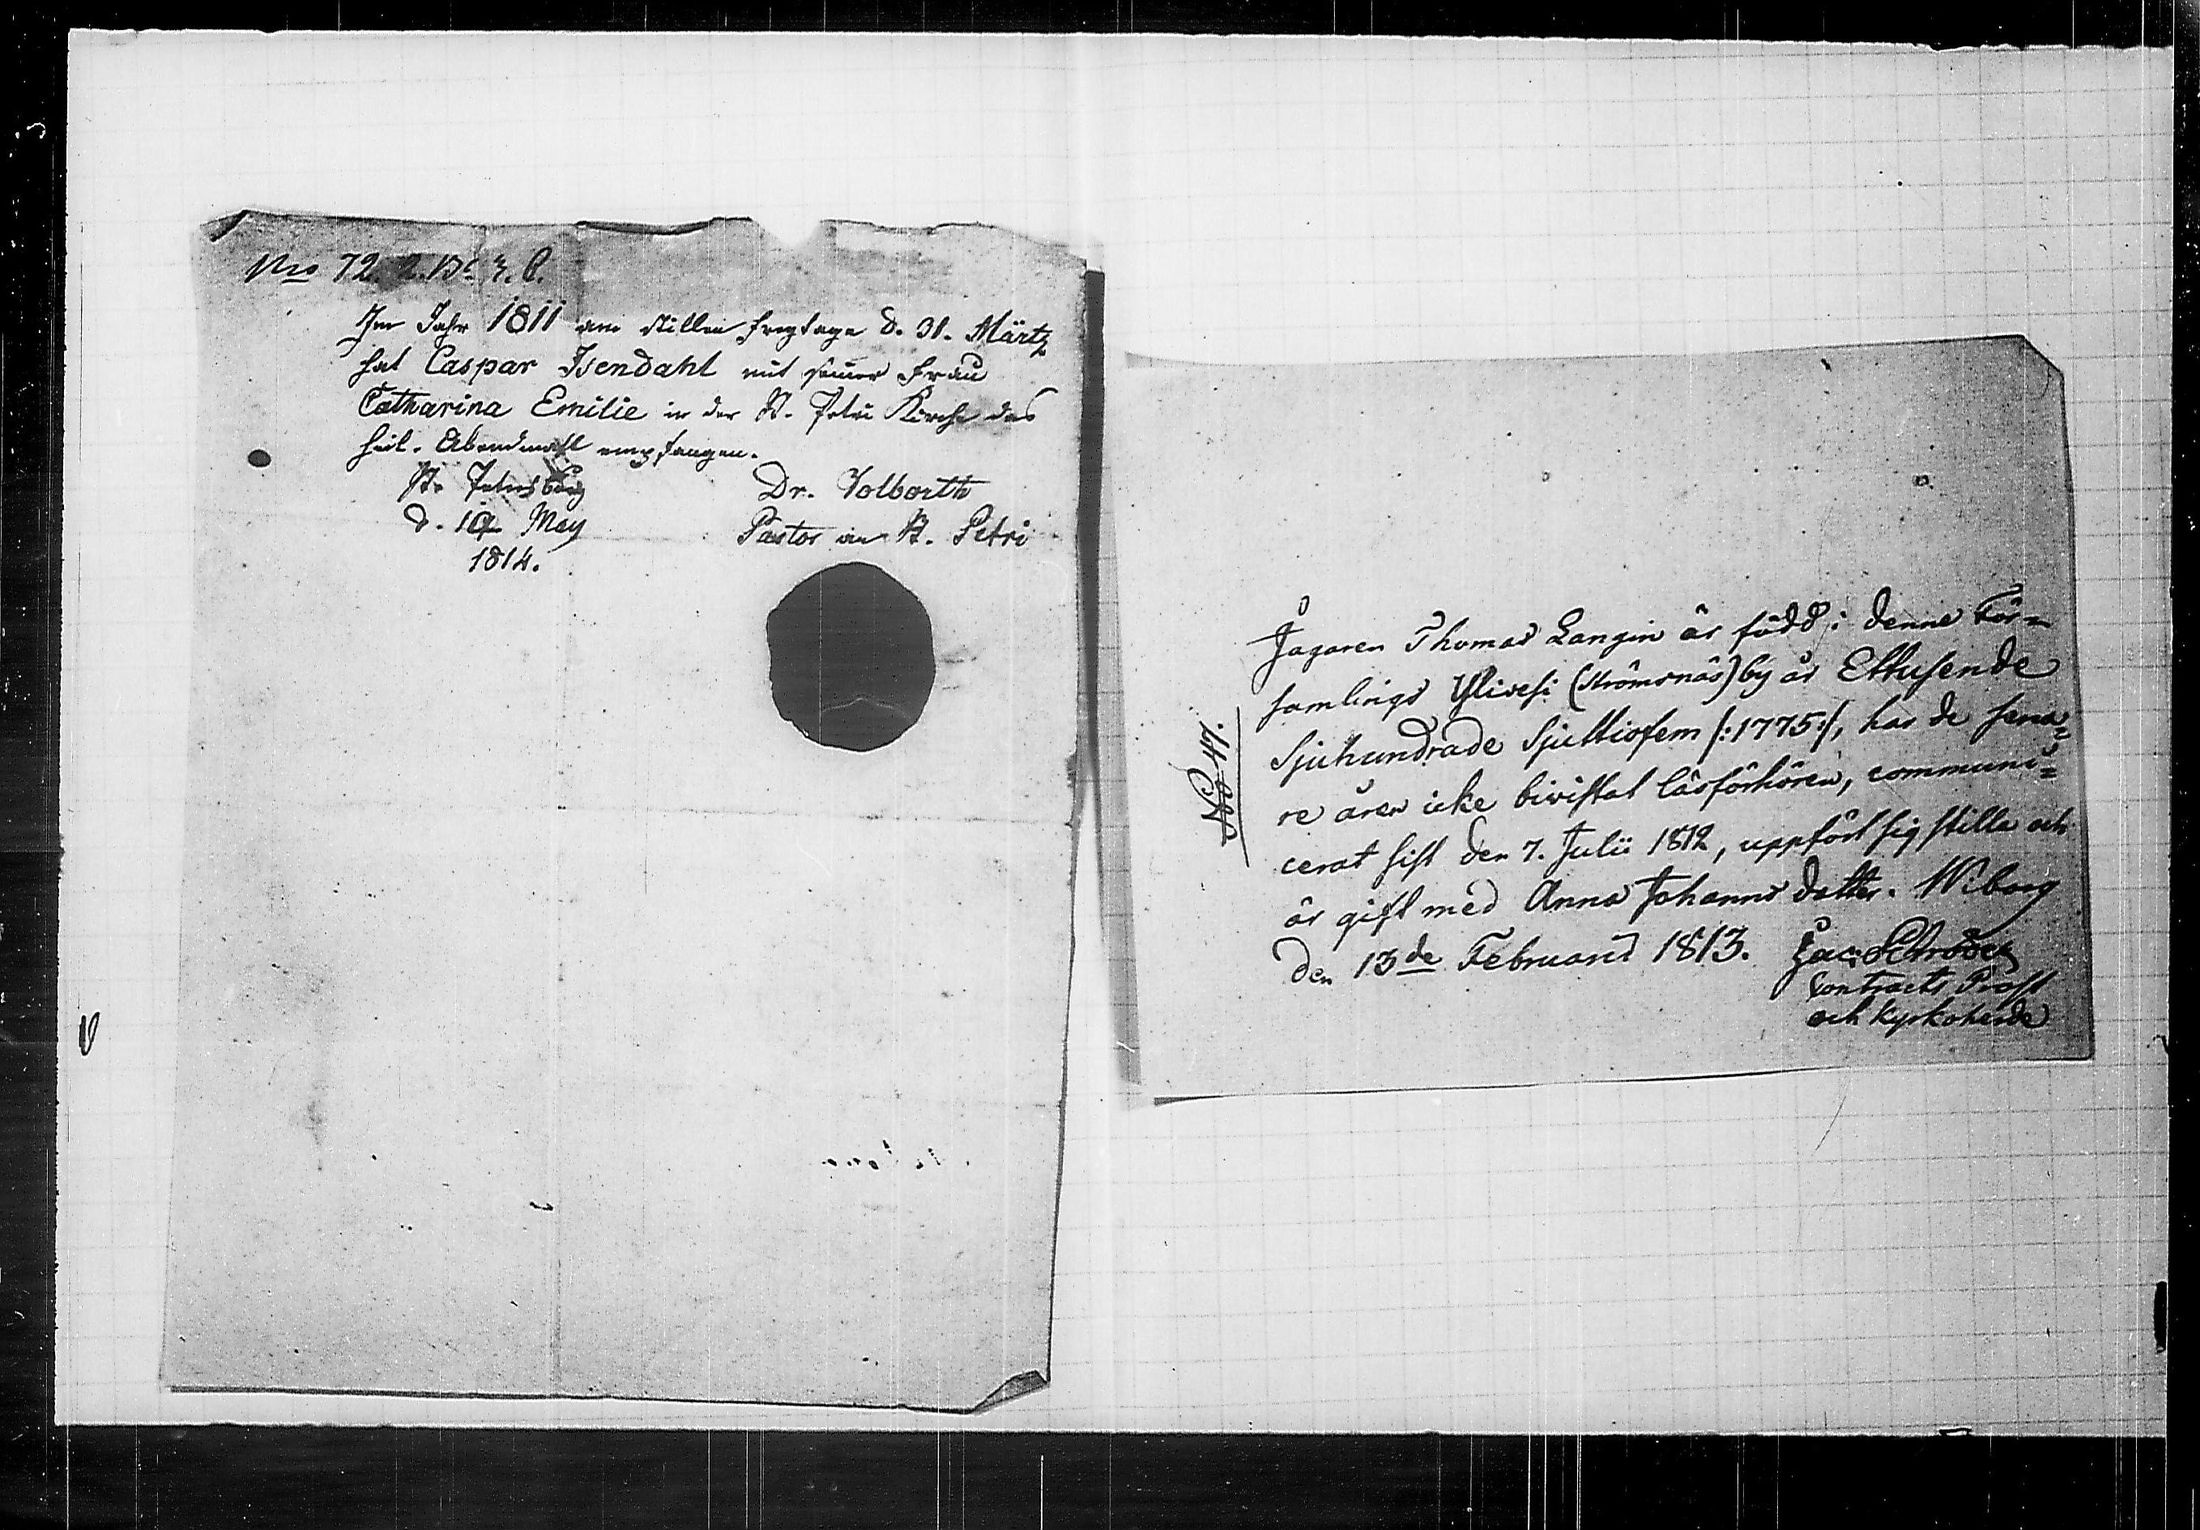 Nro 72.
Im Jahr 1811 am stillen Freytage d. 31. Märtz
hat Caspar Isendahl mit seiner Frau
Catharina Emilie in der St. Petri Kirche das
heil. Abendmahl empfangen.
St. Petersburg
d. 19 May
1814.
Dr. Volborth
Pastor an St. Petri
No 47.
Jagaren Thomas Langin är född i denne För=
samlings Ylivesi (Strömsnäs) by år Ettusende
Sjuhundrade Sjuttiofem /:1775:/, har de sena=
re åren icke bivistat läsförhören, communi=
cerat sist den 7. Julii 1812, uppfört sig stilla och
är gift med Anna Johanns dotter. Wiborg
den 13de Februarii 1813.
Contracts Prost
och Kyrkoherde